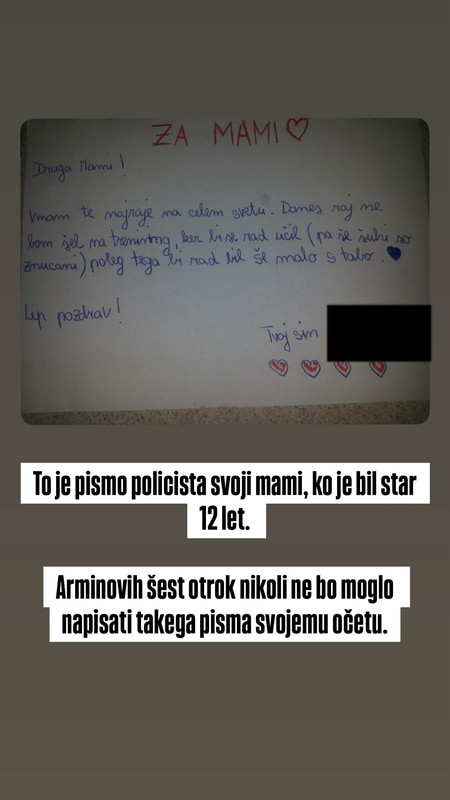 ZA MAMI♡
Draga Mami!
Imam te najraje na celem svetu. Danes raj ne
bom šel na trening, ker bi se rad učil (pa še šuhi so
znucani) poleg tega bi rad bil še malo s tabo. 💙
Lep pozdrav!
Tvoj sin
To je pismo policista svoji mami, ko je bil star
12 let.
Arminovih šest otrok nikoli ne bo moglo
napisati takega pisma svojemu očetu.